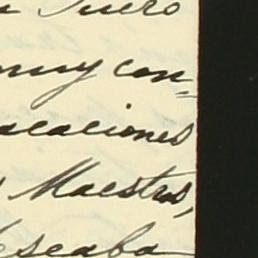 muy con-
vacaciones
Maestros,
deseaba